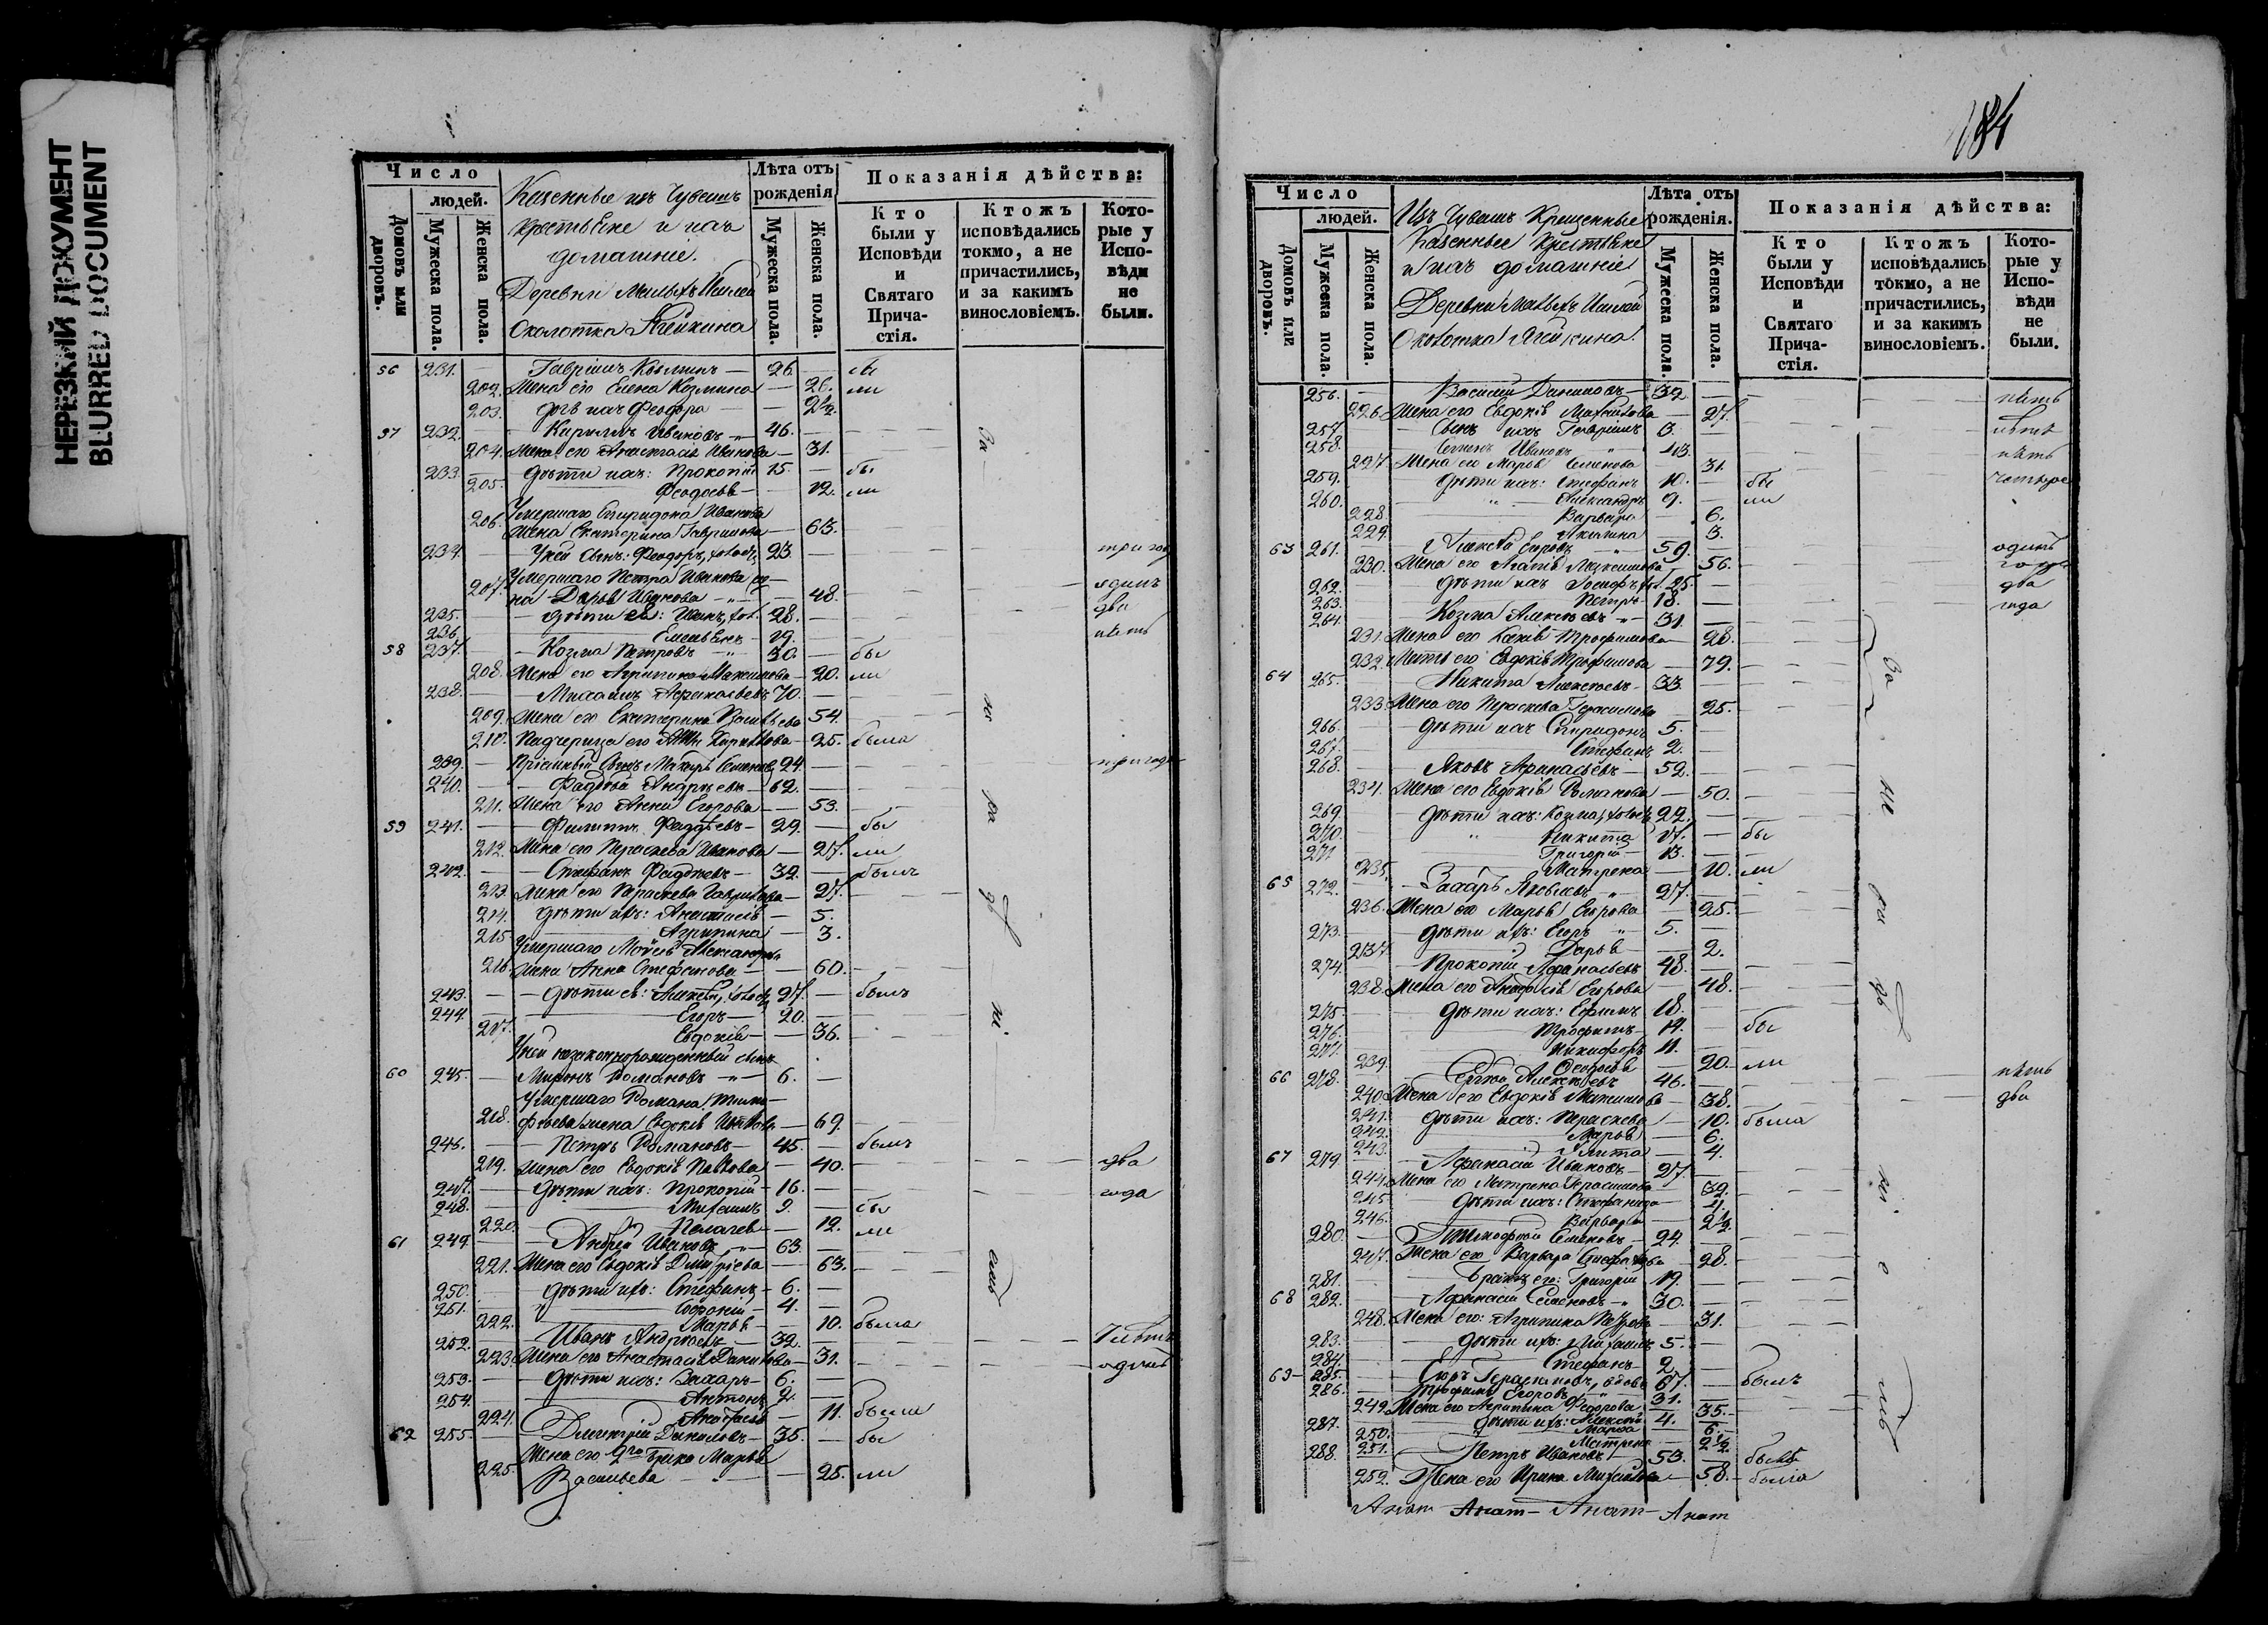 НЕРЕЗКИЙ ДОКУМЕНТ
BLURRED DOCUMENT
Число
людей.
Домовъ или дворовъ.
Мужеска пола.
Женска пола.
Казенные изъ Чувашъ
крестьяне и ихъ
домашніе.
Деревни Малыхъ
Околотка Ягейкина
Лѣта отъ рожденія
Мужеска пола.
Женска пола.
Показанія дѣйства:
Кто были у Исповѣди и Святаго Причастія.
Ктожъ исповѣдались токмо, а не причастились, и за какимъ винословіемъ.
Которые у Исповѣди не были.
56 231. Гавріилъ Козминъ 26. бы
202. Жена его Елена Козмина 26. ли
203. дочь ихъ Феодора 2½.
57 232. Кириллъ Ивановъ 46.
204. Жена его Анастасія Иванова 31.
233. дѣти ихъ: Прокопій 15. бы
205. Феодосья 12. ли
Умершаго Спиридона Иванова
206. жена Екатерина Гаврилова 63.
234. У ней сынъ: Феодоръ, холостъ 23. три года
Умершаго Петра Иванова же-
207. на Дарья Иванова 48. одинъ
235. дѣти ея: Иванъ, хол. 28. два
236. Емельянъ 19. пять
58 237. Козма Петровъ 30. бы
208. Жена его Агрипина Максимова 20. ли
238. Михаилъ Афанасьевъ 70.
209. Жена его Екатерина Васильева 54.
210. Падчерица его Кириллова 25. была
239. Пріемный сынъ Макаръ Семеновъ 24. три года
240. Фаддей Андреевъ 62.
211. Жена его Анна Егорова 53.
59 241. Филиппъ Фаддѣевъ 29. бы
212. Жена его Параскева Иванова 27. ли
242. Стефанъ Фаддѣевъ 32. былъ
213. Жена его Параскева Гаврилова 27.
214. дѣти ихъ: Анастасія 5.
215. Агрипина 3.
Умершаго Моисея Александр
216. жена Анна Стефанова 60.
243. дѣти ея: Алексѣй, холост 27. былъ
244. Егоръ 20.
217. Евдокія 36.
У ней незаконнорожденный сынъ
60 245. Миронъ Романовъ 6.
Умершаго Романа Тимо-
218. фѣева жена Евдокія 69.
246. Петръ Романовъ 45. былъ
219. Жена его Евдокія Павлова 40. два
247. дѣти ихъ: Прокопій 16. года
248. Михаилъ 9. бы
220. Пелагея 12. ли
61 249. Андрей Ивановъ 63.
221. Жена его Евдокія Дмитріева 63.
250. дѣти ихъ: Стефанъ 6.
251. Софроній 4.
222. Марья 10. была
252. Иванъ Андреевъ 32.
223. Жена его Анастасія Данилова 31. одинъ
253. дѣти ихъ: Захаръ 6.
254. Антонъ 2.
224. 11. была
62 255. Дмитрій Даниловъ 35. бы
Жена его 2го брака Марья
225. Васильева 25. ли
За не ра дѣ ні емъ
184
Число
людей.
Домовъ или дворовъ.
Мужеска пола.
Женска пола.
Изъ Чувашъ Крещенные
Казенные крестьяне
и ихъ домашніе
Деревни Малыхъ
Околотка Ягейкина.
Лѣта отъ рожденія.
Мужеска пола.
Женска пола.
Показанія дѣйства:
Кто были у Исповѣди и Святаго Причастія.
Ктожъ исповѣдались токмо, а не причастились, и за какимъ винословіемъ.
Которые у Исповѣди не были.
256. Василій Даниловъ 32. пять
226. Жена его Евдокія Михайлова 27.
257. Сынъ ихъ Гавріилъ 3.
258. Иванъ 43. пять
227. Жена его Марья Семенова 31.
259. дѣти ихъ: Стефанъ 10. бы четыре
260. Александръ 9. ли
228. Варвара 6.
229. Акилина 3.
63 261. Алексѣй 59. одинъ
230. Жена его Агафія Максимова 56. годъ
262. дѣти ихъ Іосифъ, хол. 25. два
263. Петръ 18. года
264. Козма Алексѣевъ 31.
231. Жена его Ксенія Трофимова 28.
232. Мать его Евдокія Трофимова 79.
64 265. Никита Алексѣевъ 33.
233. Жена его Параскева Герасимова 25.
266. дѣти ихъ Спиридонъ 5.
267. Стефанъ 2.
268. Яковъ Афанасьевъ 52.
234. Жена его Евдокія Романова 50.
269. дѣти ихъ: Козма, холостъ 22.
270. Никита 17. бы
271. Григорій 13.
235. Матрена 10. ли
65 272. Захаръ Яковлевъ 27.
236. Жена его Марья Егорова 25.
273. дѣти ихъ: Егоръ 5.
237. Дарья 2.
274. Прокопій Афанасьевъ 48.
238. Жена его Анастасія Егорова 48.
275. дѣти ихъ: Ефимъ 18.
276. Трофимъ 14. бы
277. Никифоръ 11.
239. Феодосья 20. ли
66 278. Алексѣевъ 46. пять
240. Жена его Евдокія 38. два
241. дѣти ихъ: Параскева 10. была
242. Марья 6.
243. Улита 4.
67 279. Афанасій Ивановъ 27.
244. Жена его Матрена Герасимова 32.
245. дѣти ихъ: Стефанида 4.
246. Варвара 2½.
280. Тимофей Семеновъ 24.
247. Жена его Варвара Стефанова 28.
281. братъ его: Григорій 19.
68 282. Афанасій Семеновъ 30.
248. Жена его: Агрипина Петрова 31.
283. дѣти ихъ: Михаилъ 5.
284. Стефанъ 2.
69 285. Егоръ Герасимовъ, вдовъ 67. былъ
286. Трофимъ Егоровъ 31.
249. Жена его Агрипина Федорова 35.
287. дѣти ихъ: Алексѣй 4.
250. Марфа 6.
251. Матрена 2½.
288. Петръ Ивановъ 53. былъ
252. Жена его Ирина Михайлова 58. была
За не ра дѣ ні е мъ
Анат Анат Анат Анат